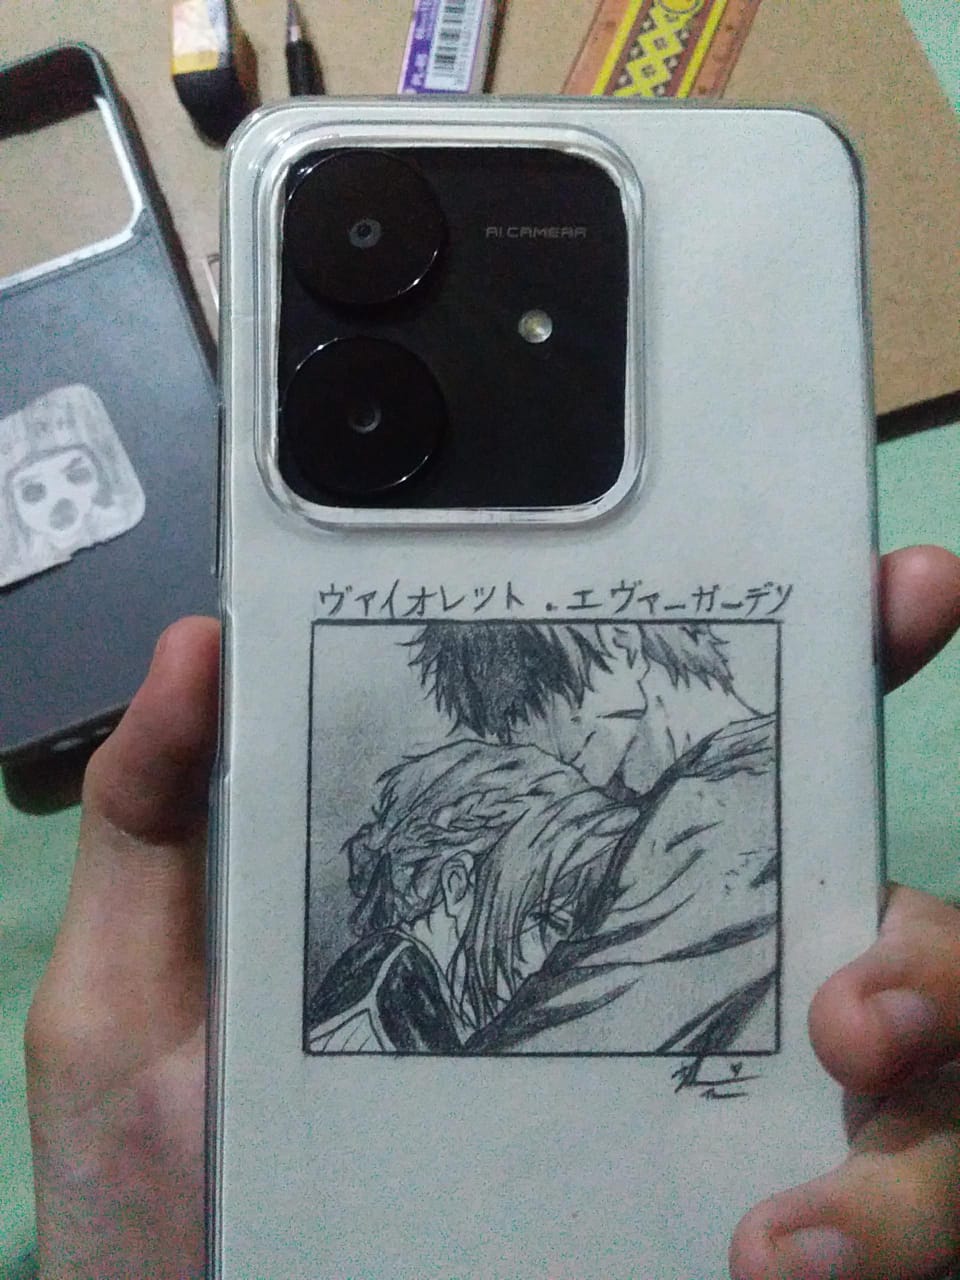 AI CAMERA
ヴァイオレット・エヴァーガーデン